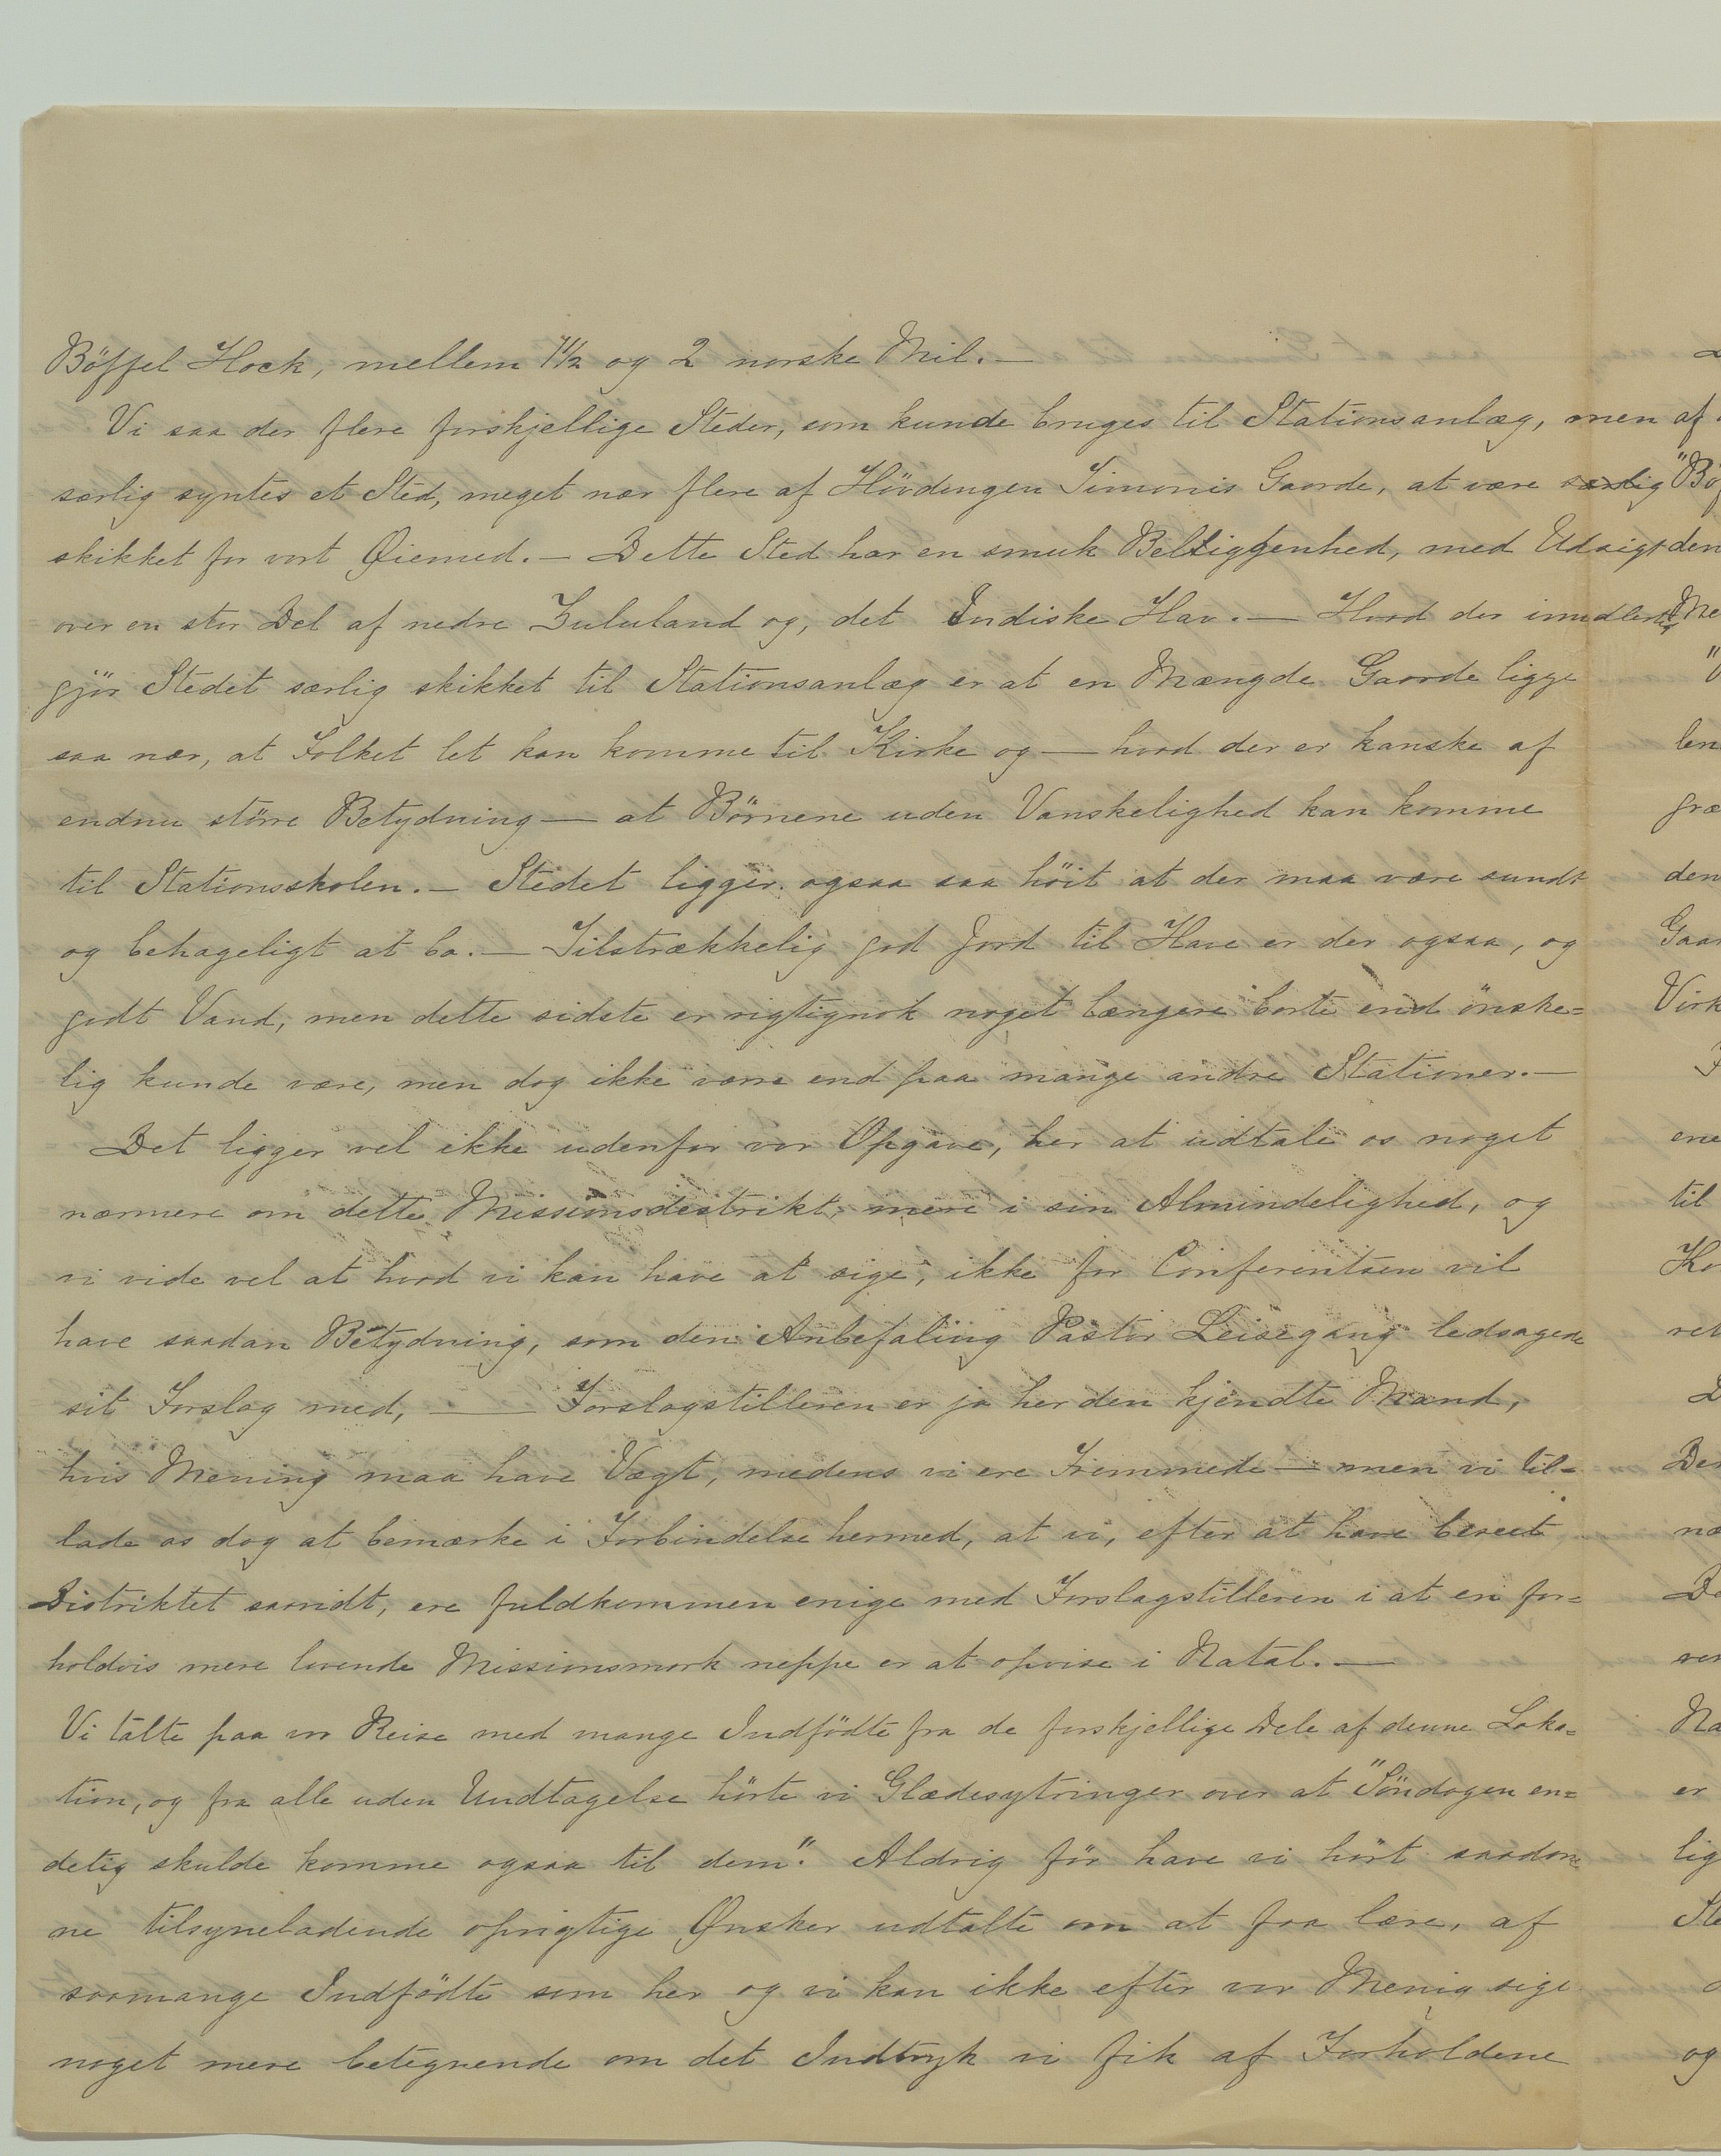 Böffel Hock, mellem 1½ og 2 norske Mil. —
Vi saa der flere forskjellige Steder, som kunde bruges til Stationsanlæg, men af
særlig syntes et Sted, meget nær flere af Hövdingen Timonis Gaarde, at være særlig
skikket for vort Øiemed. — Dette Sted har en smuk Beliggenhed, med Udsigt
over en stor Del af nedre Zululand og, det Indiske Hav. — Hvad der imidlertid
gjör Stedet særlig skikket til Stationsanlæg er at en Mængde Gaarde ligge
saa nær, at Folket let kan komme til Kirke og — hvad der er kanske af
endnu större Betydning — at Börnene uden Vanskelighed kan komme
til Stationsskolen. — Stedet ligger ogsaa saa höit at der maa være sundt
og behageligt at bo. — Tilstrækkelig god Jord til Have er der ogsaa, og
godt Vand, men dette sidste er rigtignok noget længere borte end önske=
lig kunde være, men dog ikke værre end paa mange andre Stationer. —
Det ligger vel ikke udenfor vor Opgave, her at udtale os noget
nærmere om dette Missionsdistrikt, mere i sin Almindelighed, og
vi vide vel at hvad vi kan have at sige, ikke for Conferentsen vil
have saadan Betydning, som den Anbefaling Pastor Leisegang ledsagede
sit Forslag med, — Forslagstilleren er jo her den kjendte Mand,
hvis Mening maa have Vægt, medens vi ere Fremmede — men vi til=
lade os dog at bemærke i Forbindelse hermed, at vi, efter at have bereist
Distriktet saavidt, ere fuldkommen enige med Forslagstilleren i at en for=
holdvis mere lovende Missionsmark neppe er at opvise i Natal. —
Vi talte paa vor Reise med mange Indfödte fra de forskjellige Dele af denne Loka=
tion, og fra alle uden Undtagelse hörte vi Glædesytringer over at "Söndagen en=
delig skulde komme ogsaa til dem". Aldrig för have vi hört saadan=
ne tilsyneladende oprigtige Ønsker udtalte om at faa lære, af
saamange Indfödte som her og vi kan ikke efter vor Menig sige
noget mere betegnende om det Indtryk vi fik af Forholdene